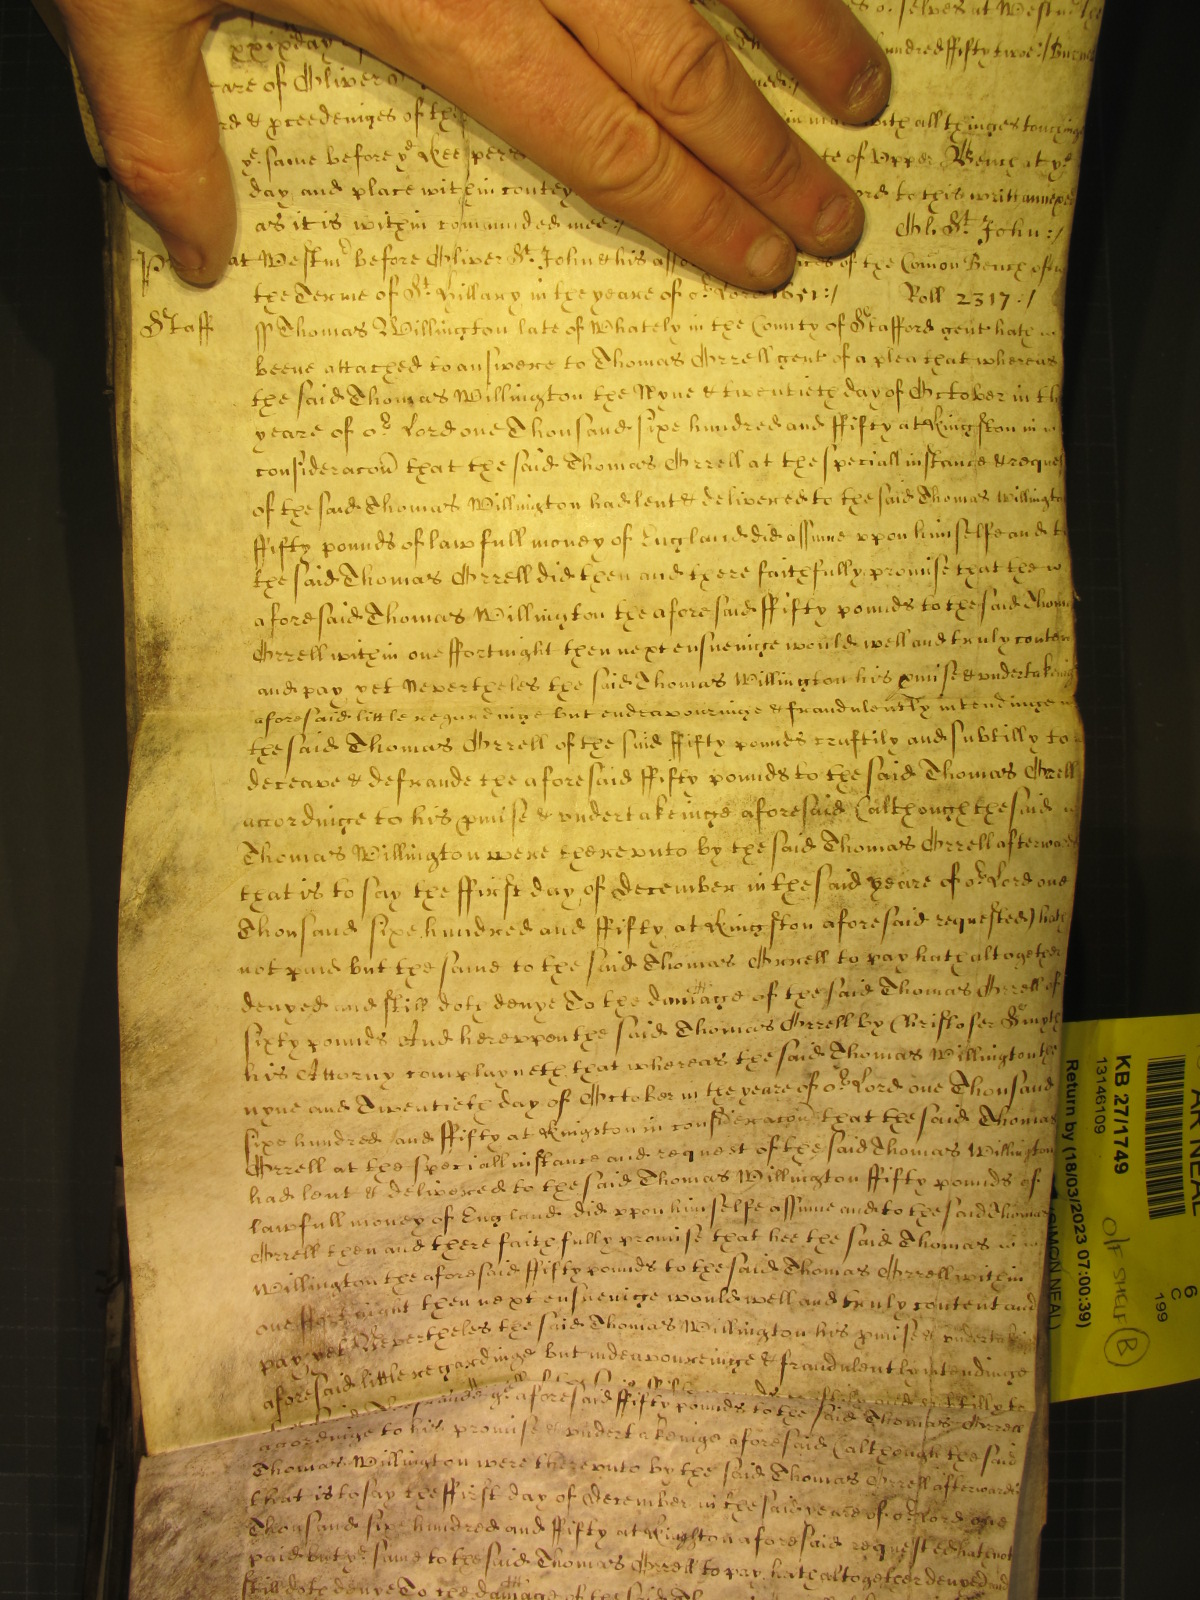 es o. selves at Westm
xxixday
undred ffifty twoe:/
eare of Oliver
rd & pceedeinges of the
in man with all thinges touchinge
ye same before ye Keepers
te of Vpper Bench at ye
day and place within
ord to this writt annexed
as it is within comaunded mee:/
Ol: St. John:/
at Westmr before Oliver St. John & his
ces of the Comon Bench of
the Terme of St. Hillary in the yeare of or Lord 1651:/ Roll 2317:/
Staff
Thomas Willington late of Whately in the County of Stafford gent hath
beene attached to answere to Thomas Orrell gent of a plea that whereas
the said Thomas Willington the Nyne & twentieth day of October in the
yeare of or Lord one Thousand sixe hundred and ffifty at Kingston in
consideracon that the said Thomas Orrell at the speciall instance & reque
of the said Thomas Willington had lent & delivered to the said Thomas Willingto
ffifty pounds of lawfull money of England did assume vpon himselfe and t
the said Thomas Orrell did then and there faithfully promise that the
aforesaid Thomas Willington the aforesaid ffifty pounds to the said Thom
Orrell within one ffortnight then next ensueinge would well and truly conten
and pay yet Nevertheles the said Thomas Willington his pmise & vndertakeing
aforesaid little regardinge but endeavouringe & fraudulently intendinge
the said Thomas Orrell of the said ffifty pounds craftily and subtilly to
deceave & defraude the aforesaid ffifty pounds to the said Thomas Orrell
accordinge to his pmise & vndertakeinge aforesaid (although the said
Thomas Willington were therevnto by the said Thomas Orrell afterward
that is to say the ffirst day of December in the said yeare of or Lord one
Thousand sixe hundred and ffifty at Kingston aforesaid requested) hath
not paid but the same to the said Thomas Orrell to pay hath altogether
denyed and still doth denye To the damage of the said Thomas Orrell of
sixty pounds And herevpon the said Thomas Orrell by Cristofer Smyth
his Attorny complayneth that whereas the said Thomas Willington the
nyne and Twentieth day of October in the yeare of or Lord one Thousand
sixe hundred and ffifty at Kingston in consideracon that the said Thomas
Orrell at the speciall instance and request of the said Thomas Willington
had lent & delivered to the said Thomas Willington ffifty pounds of
lawfull money of England did vpon himselfe assume and to the said Thomas
Orrell then and there faithfully promise that hee the said Thomas
Willington the aforesaid ffifty pounds to the said Thomas Orrell within
one ffortnight then next ensueinge would well and truly content and
pay yet Nevertheles the said Thomas Willington his pmise & vndertakeing
aforesaid little regardinge but indeavoureinge & fraudulently intendinge
aforesaid ffifty pounds to the said Thomas Orrell
accordinge to his promise & vndertakeinge aforesaid (although the said
Thomas Willington were therevnto by the said Thomas Orrell afterwards
that is to say the ffirst day of December in the said yeare of or Lord one
Thousand sixe hundred and ffifty at Kingston aforesaid requested hath not
paid but ye same to the said Thomas Orrell to pay hath altogether denyed and
still doth denye To the damage of the said
AR NEAL
KB 27/1749
13146109
Return by (18/03/2023 07:00:39)
(SIMON NEAL)
O/F SHELF B
6
C
199